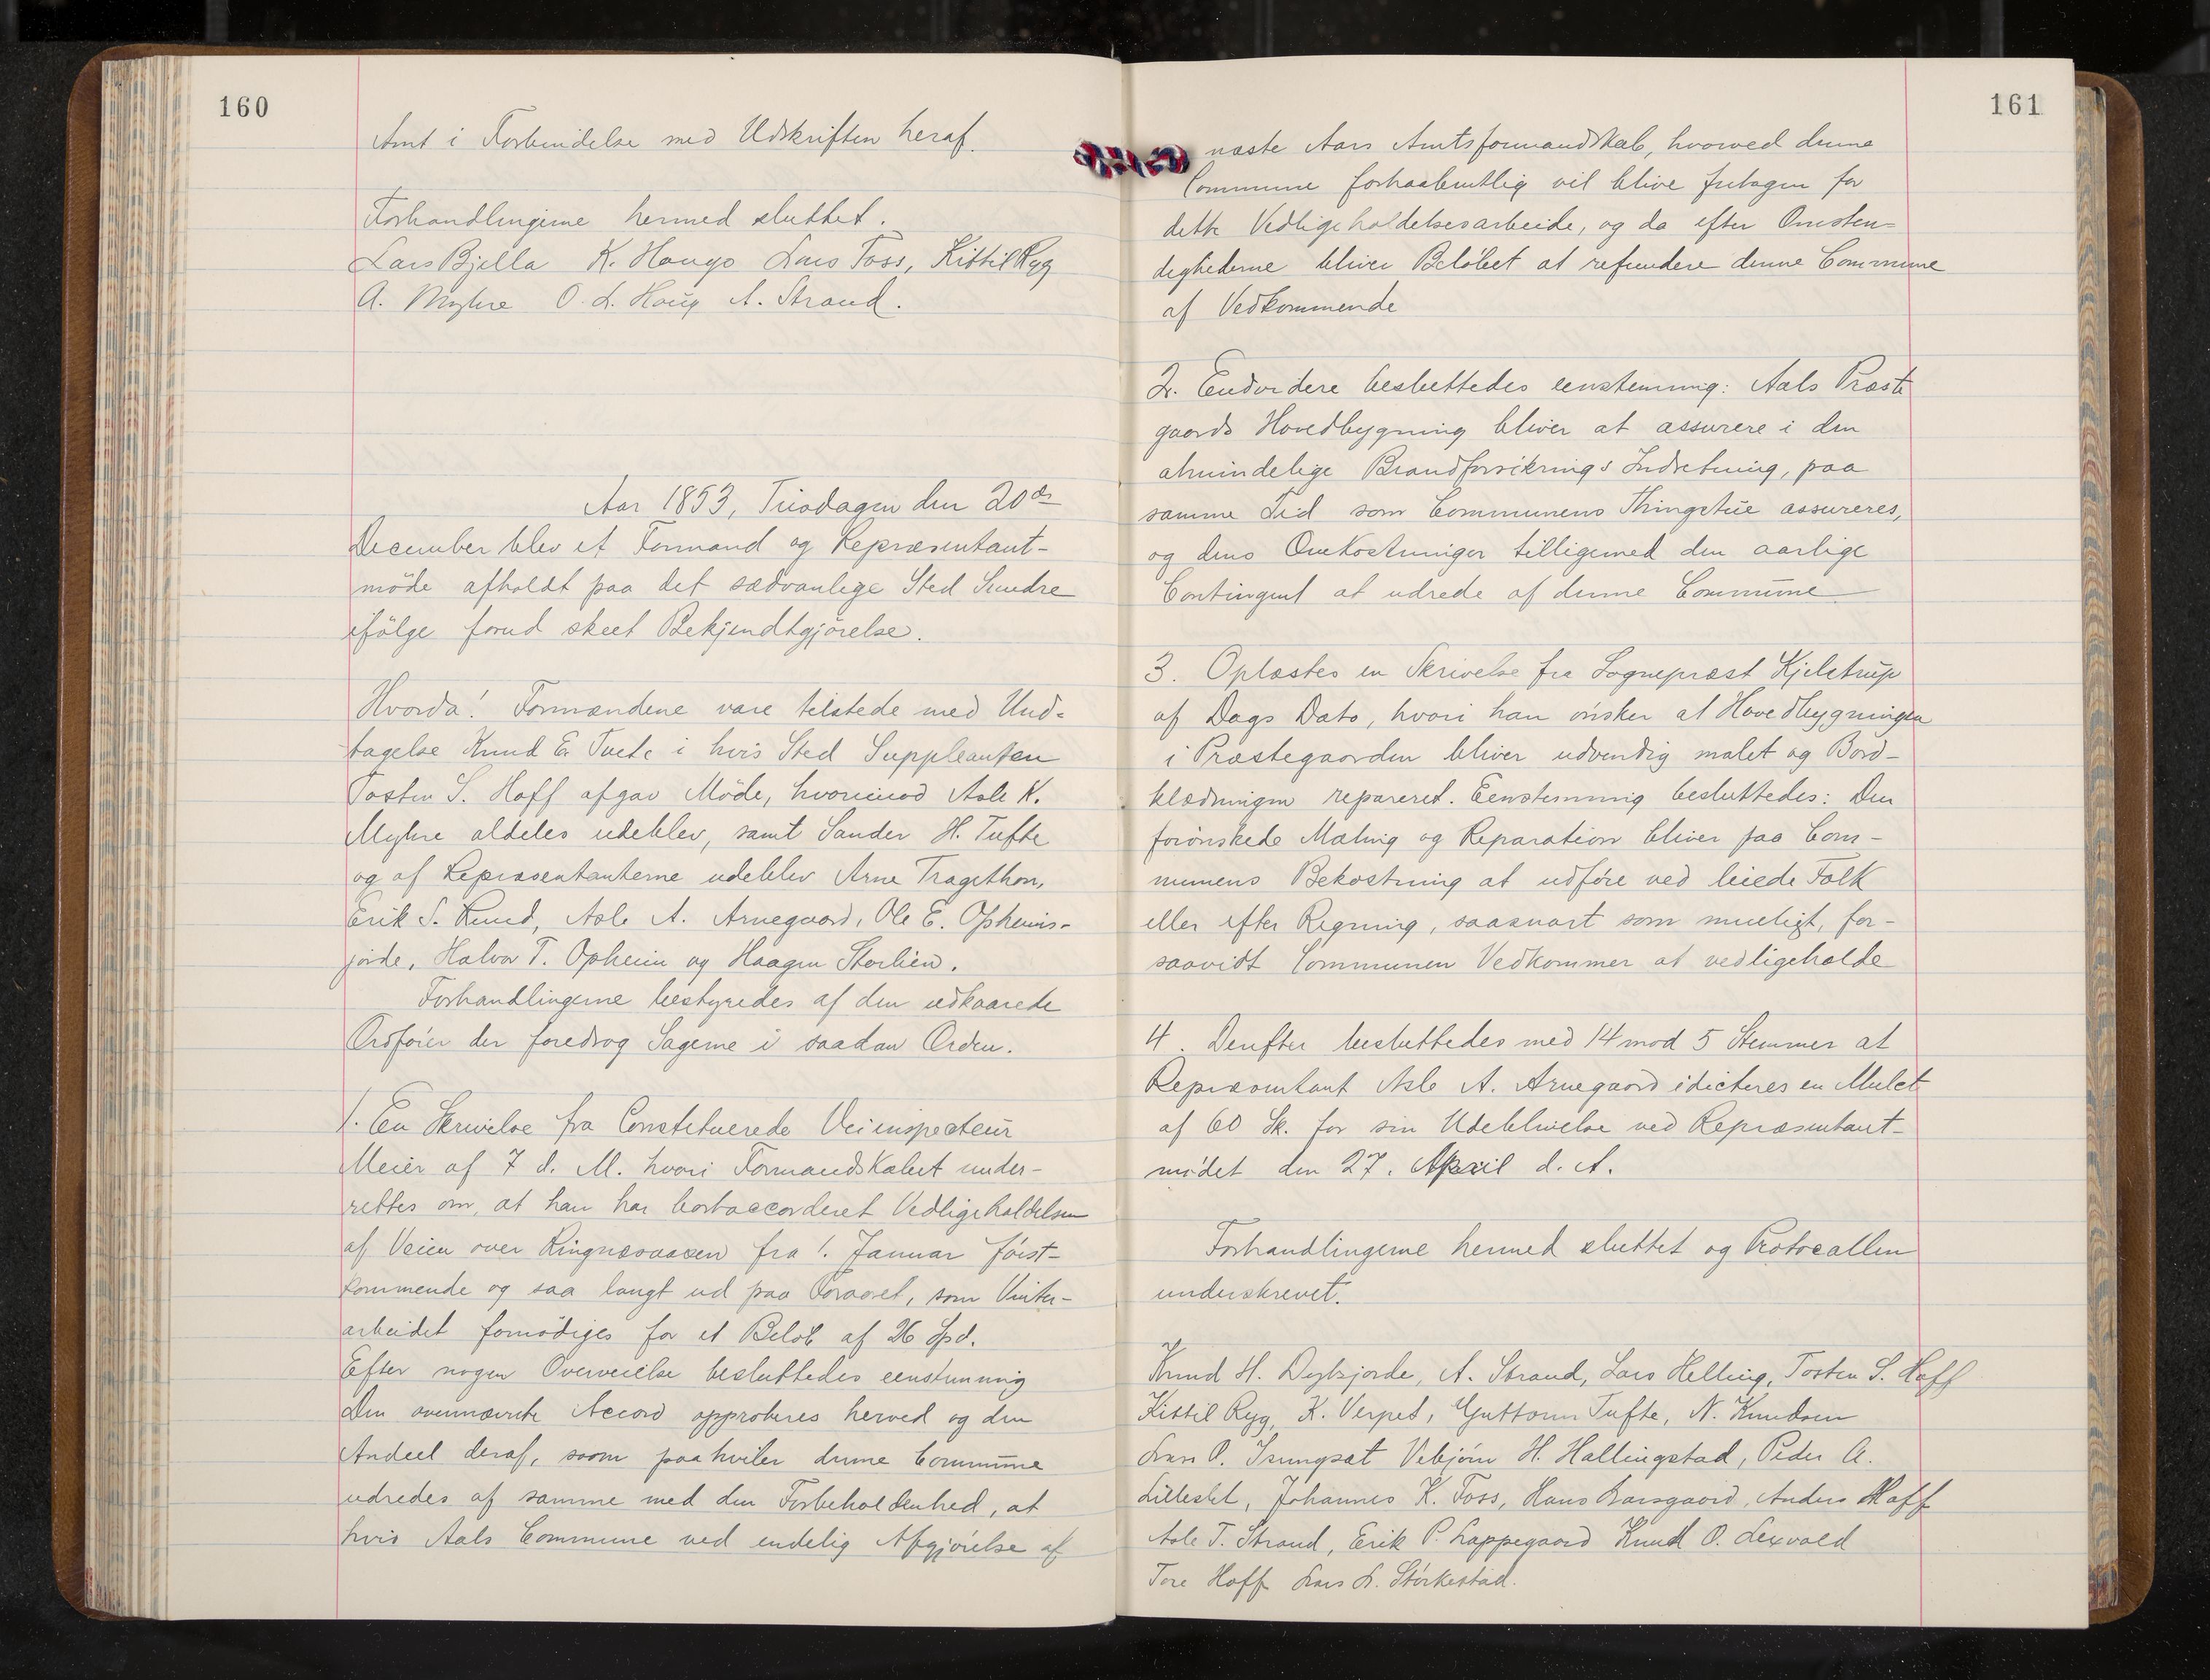 160
Amt i Forbindelse med Udskriften heraf.
Forhandlingerne hermed sluttet.
Lars Bjella K. Haugo Lars Foss, Kittil Ryg
A. Myhre O. L. Haug A. Strand.
Aar 1853, Tirsdagen den 20de
December blev et Formand og Repræsentant-
möde afholdt paa det sædvanlige Sted Sundre
ifölge forud skeet Bekjendtgjörelse.
Hvorda! Formændene vare tilstede med Und-
tagelse Knud E. Tvete i hvis Sted Suppleanten
Tosten S. Hoff afgav Möde, hvorimod Asle K.
Myhre aldeles udeblev, samt Sander H. Tufte
og af Repræsentanterne udeblev Arne Tragethon,
Erik S. Rund, Asle A. Arnegaard, Ole E. Opheims-
jorde, Halvor T. Opheim og Haagen Storlien.
Forhandlingerne bestyredes af den udkaarede
Ordförer der foredrog Sagerne i saadan Orden.
1. En Skrivelse fra Constituerede Veiinspecteur
Meier af 7 d. M. hvori Formandskabet under-
rettes om, at han har bortaccorderet Vedligeholdelsen
af Veien over Ringnesaasen fra 1. Januar först-
kommende og saa langt ud paa Foraaret, som Vinter-
arbeidet fornödiges for et Belöb af 26 Spd.
Efter nogen Overveielse besluttedes eenstemmig
Den ovennævnte Accord approberes herved og den
Andeel deraf, soom paahviler denne Commune
udredes af samme med den Forbeholdenhed, at
hvis Aals Commune ved endelig Afgjörelse af
161
næste Aars Amtsformandskab, hvorved denne
Commune forhaabentlig vil blive fritagen for
dette Vedligeholdelsesarbeide, og da efter Omsten-
dighederne bliver Belöbet at refundere denne Commune
af Vedkommende
2. Endvidere besluttedes eenstemmig: Aals Præste
gaards Hovedbygning bliver at assurere i den
almindelige Brandforsikrings Indretning, paa
samme Tid som Communens Thingstue assureres,
og dens Omkostninger tilligemed den aarlige
Contingent at udrede af denne Commune
3. Oplæstes en Skrivelse fra Sognepræst Kjelstrup
af Dags Dato, hvori han önsker at Hovedbygningen
i Præstegaarden bliver udvendig malet og Bord-
klædningen repareret. Eenstemmig besluttedes: Den
forönskede Maling og Reparation bliver paa Com-
munens Bekostning at udföre ved leiede Folk
eller efter Regning, saasnart som mueligt, for-
saavidt Communen Vedkommer at vedligeholde
4. Derefter besluttedes med 14 mod 5 Stemmer at
Repræsentant Asle A. Arnegaard idicteres en Mulct
af 60 Sk. for sin Udeblivelse ved Repræsentant-
mödet den 27. April d. A.
Forhandlingerne hermed sluttet og Protocollen
underskrevet.
Knud H. Dybsjorde, A. Strand, Lars Helling, Tosten S. Hoff
Kittil Ryg, K. Verpet, Guttorm Tufte, N. Knudsen
Lars O. Isungset Vebjörn H. Hallingstad, Peder A.
Lilleslet, Johannes K. Foss, Hans Larsgaard, Anders Hoff
Asle T. Strand, Erik P. Lappegaard Knud O. Lexvold
Tore Hoff Lars L. Störkestad.